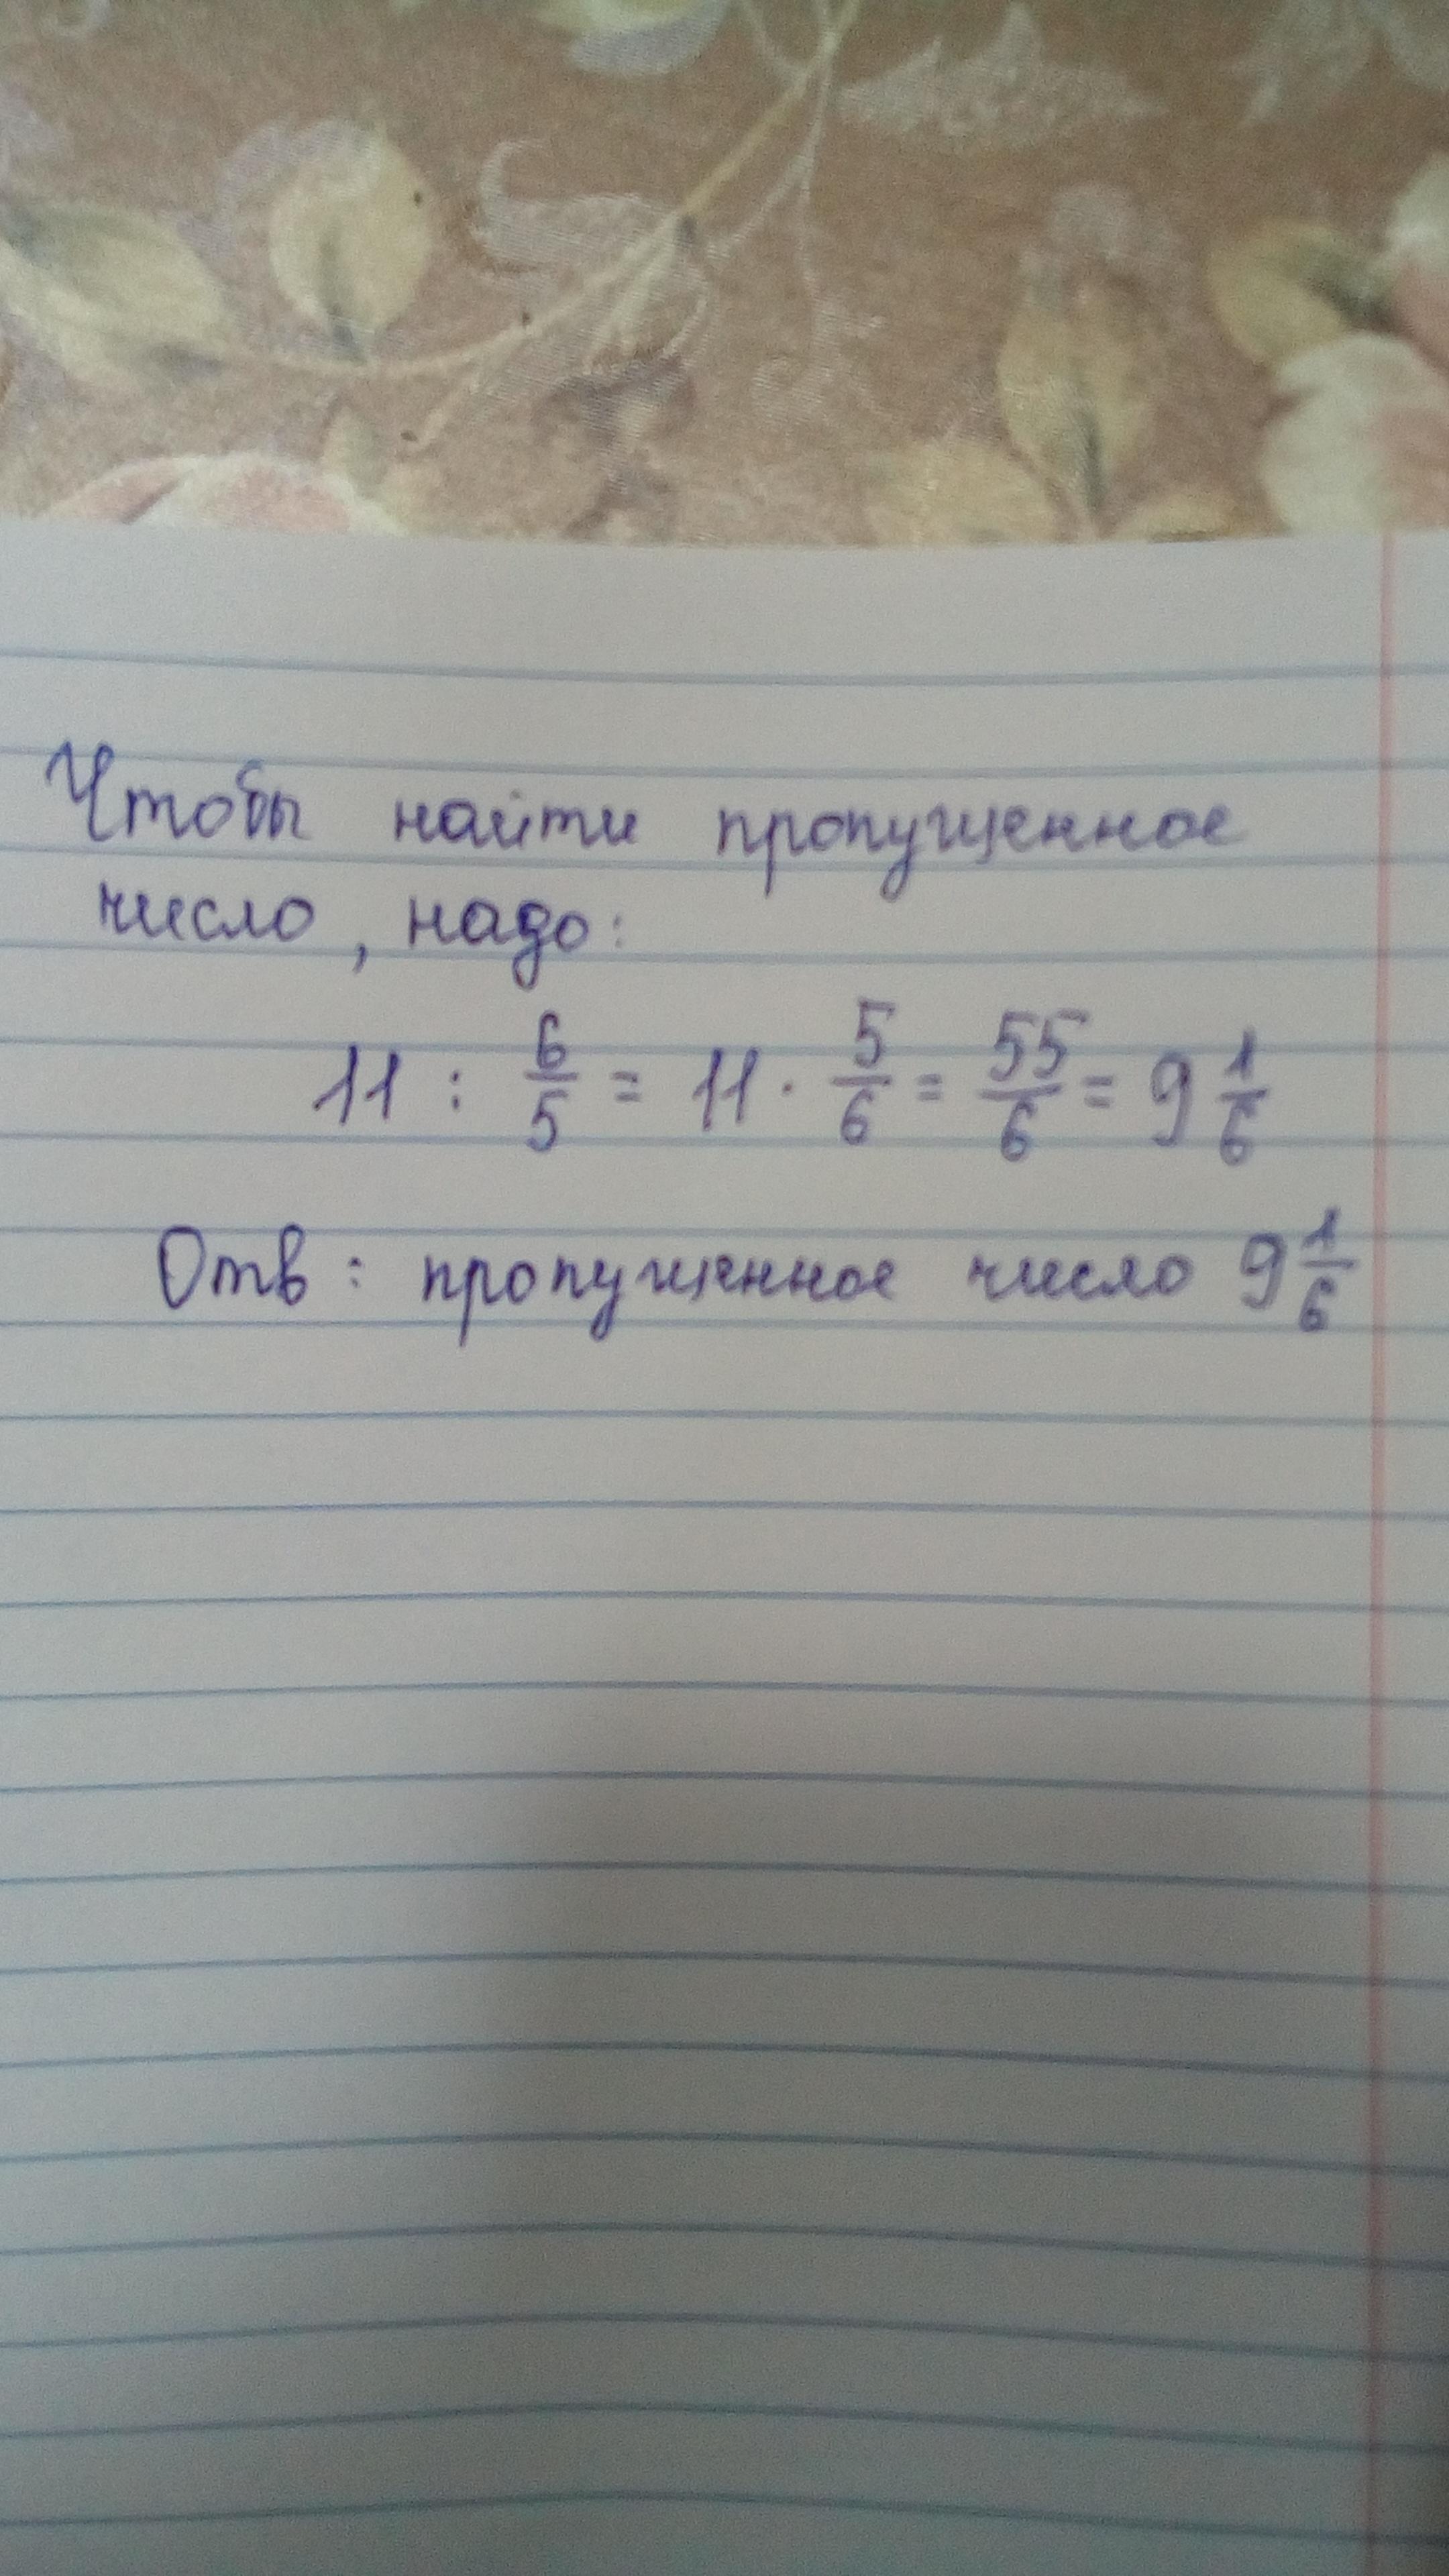 Чтобы найти пропущенное
число, надо:
11 : 6/5 = 11 · 5/6 = 55/6 = 9 1/6
Отв: пропущенное число 9 1/6